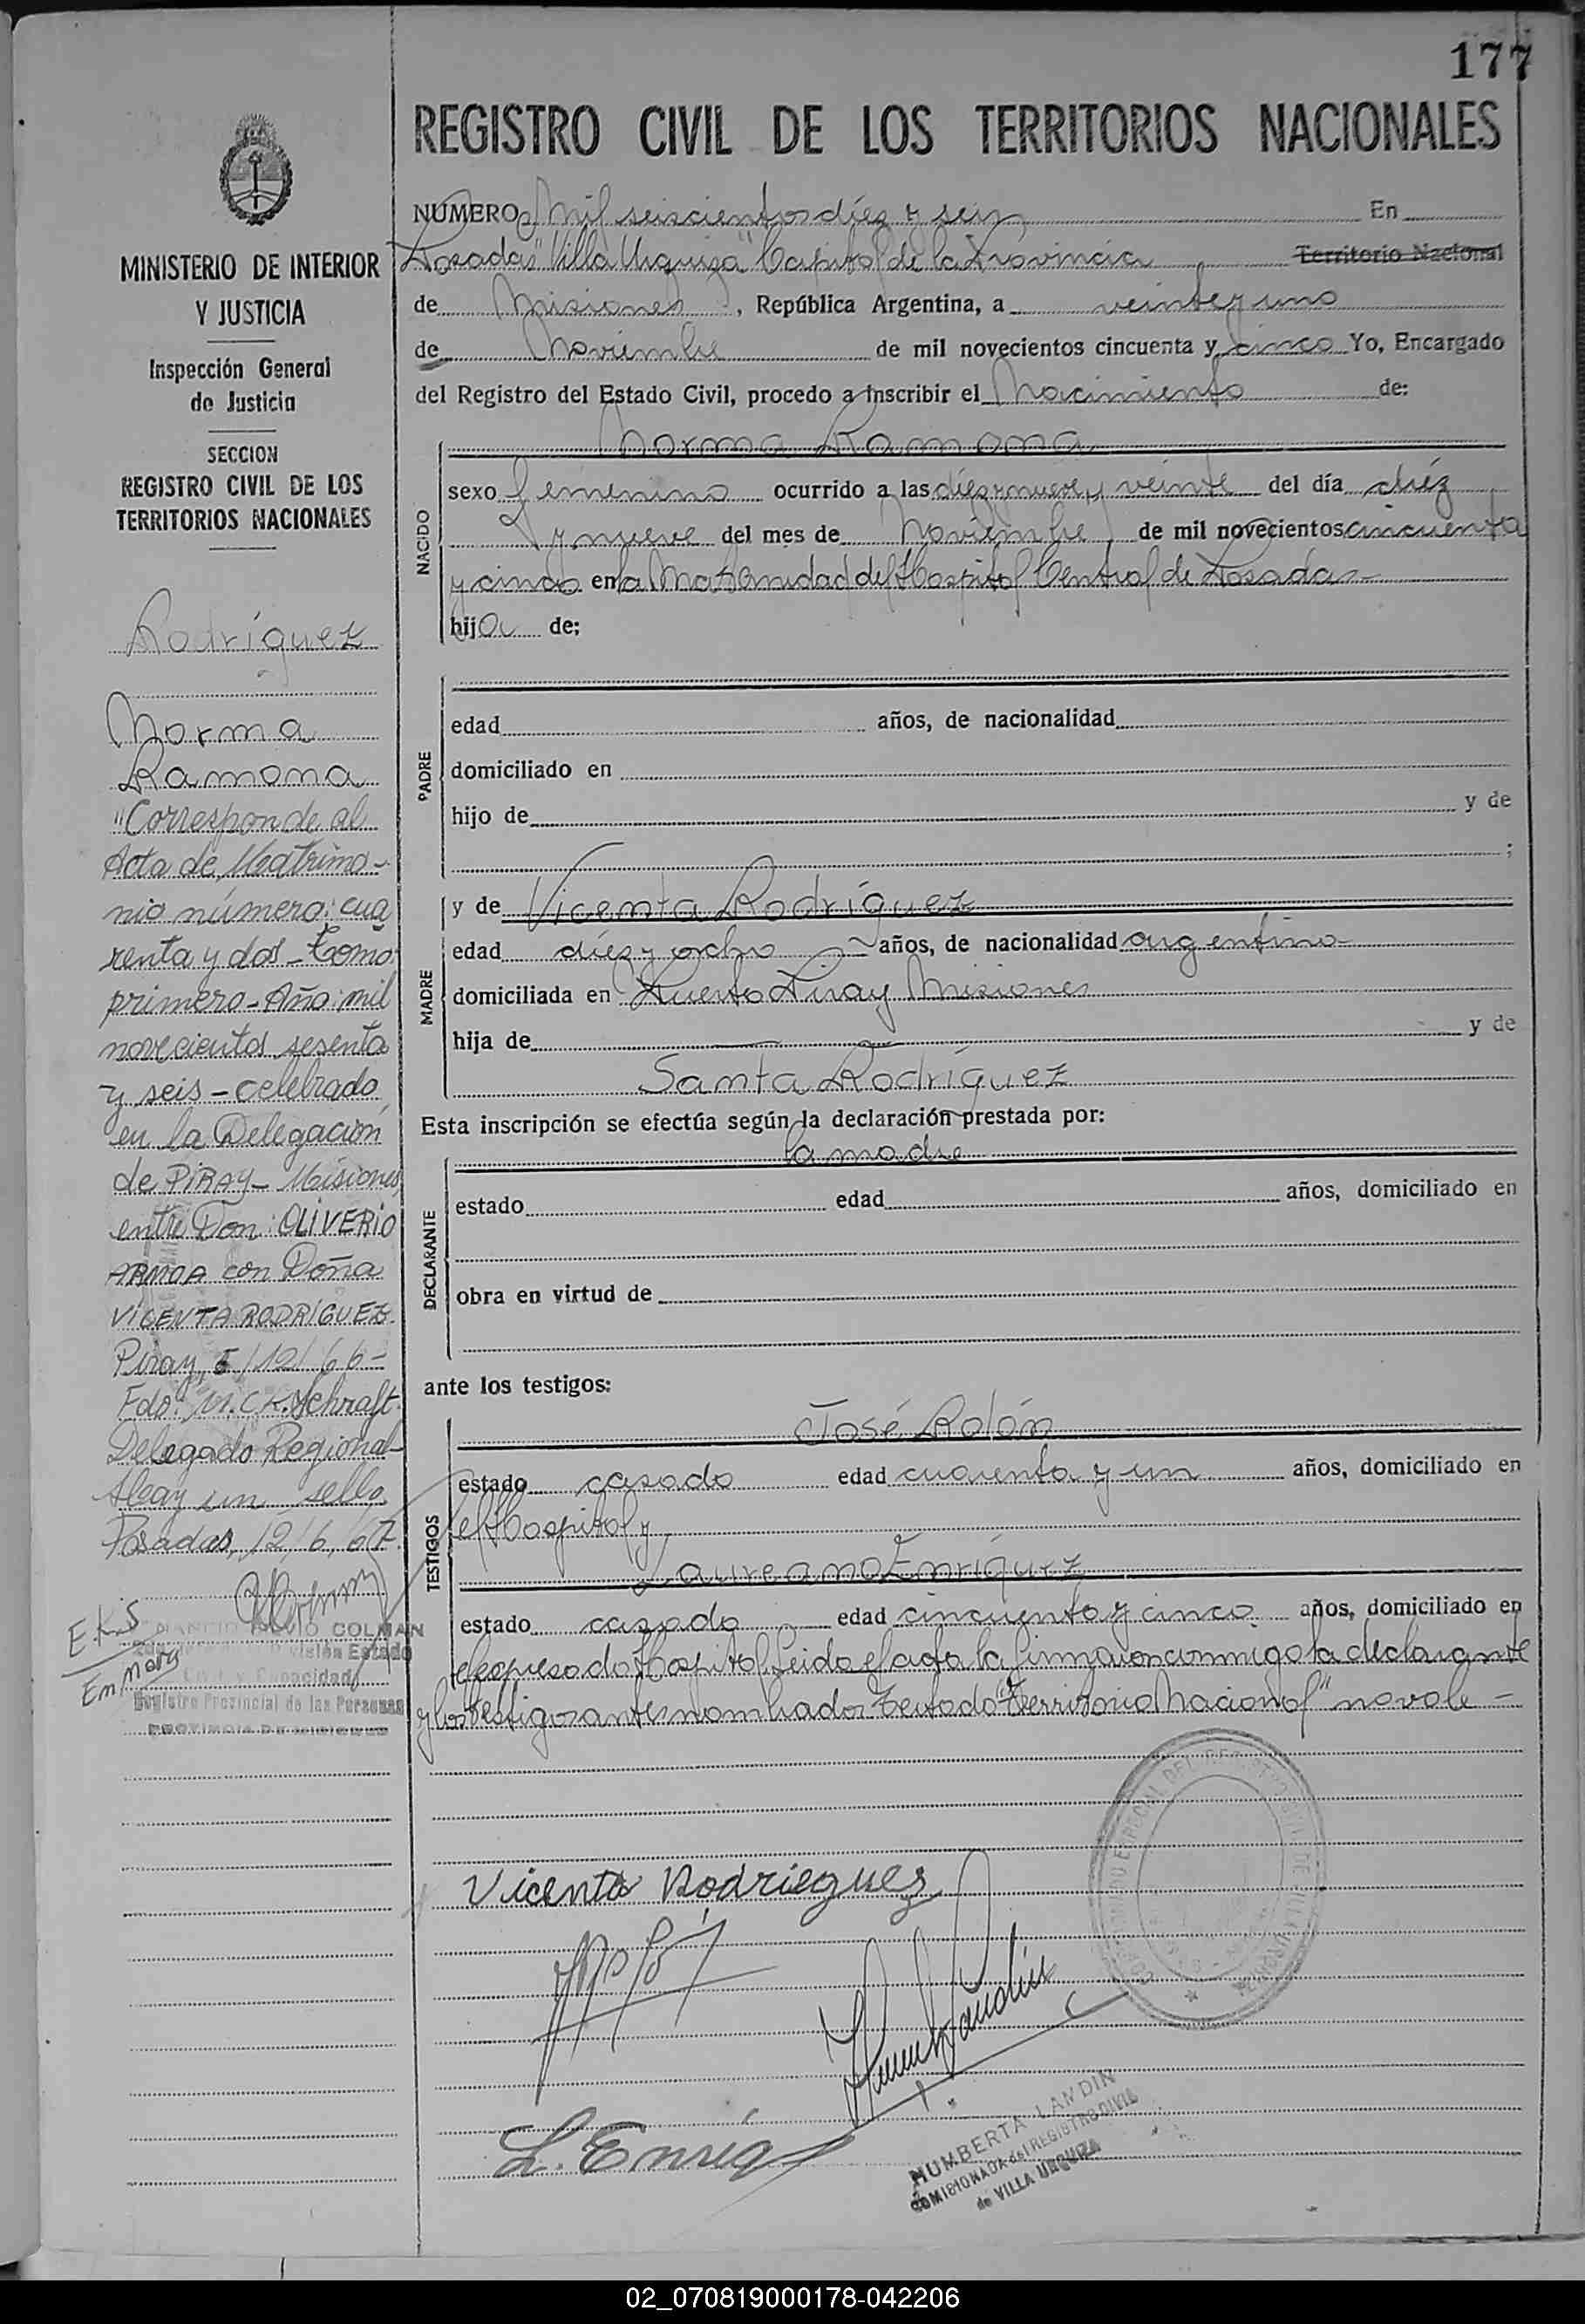 177
REGISTRO CIVIL DE LOS TERRITORIOS NACIONALES
NUMERO Mil seiscientos diéz y seis En
Posadas "Villa Urquiza" Capital de la Provincia Territorio Nacional
de Misiones, República Argentina, a veinte y uno
de Noviembre de mil novecientos cincuenta y cinco Yo, Encargado
del Registro del Estado Civil, procedo a inscribir el Nacimiento de:
NACIDO
Norma Ramona
sexo femenino ocurrido a las diéz y nueve y veinte del día diéz
y nueve del mes de Noviembre de mil novecientos cincuenta
y cinco en la Maternidad del Hospital Central de Posadas-
hija de;
PADRE
edad años, de nacionalidad
domiciliado en
hijo de y de
;
MADRE
y de Vicenta Rodríguez
edad diéz y ocho - años, de nacionalidad argentina-
domiciliada en Puerto Piray Misiones
hija de y de
Santa Rodríguez
Esta inscripción se efectúa según la declaración prestada por:
DECLARANTE
la madre
estado edad años, domiciliado en
obra en virtud de
ante los testigos:
TESTIGOS
José Rolón
estado casado edad cuarenta y un años, domiciliado en
el Hospital y
Laureano Enríquez
estado casado edad cincuenta y cinco años, domiciliado en
el expresado Hospital. Leida el acta la firmaron conmigo la declarante
y los testigos antes nombrados Testado "Territorio Nacional" no vale-
Vicenta Rodriegues
L. Enriq
HUMBERTA LANDIN
COMISIONADA del REGISTRO CIVIL
de VILLA URQUIZA
MINISTERIO DE INTERIOR
Y JUSTICIA
Inspección General
de Justicia
SECCION
REGISTRO CIVIL DE LOS
TERRITORIOS NACIONALES
Rodríguez
Norma
Ramona
"Corresponde al
Acta de Matrimo-
nio número: cua
renta y dos - Tomo
primero - Año: mil
novecientos sesenta
y seis - celebrado
en la Delegación
de PIRAY - Misiones,
entre Don: OLIVERIO
ARMOA con Doña
VICENTA RODRIGUEZ.
Piray, 5/12/66-
Fdo: M.C.K. Schraft.
Delegado Regional-
Hay un sello.
Posadas, 12/6/67.
E.K.S
COLMAN
División Estado
Civil y Capacidad
Registro Provincial de las Personas
PROVINCIA DE MISIONES
02_070819000178-042206